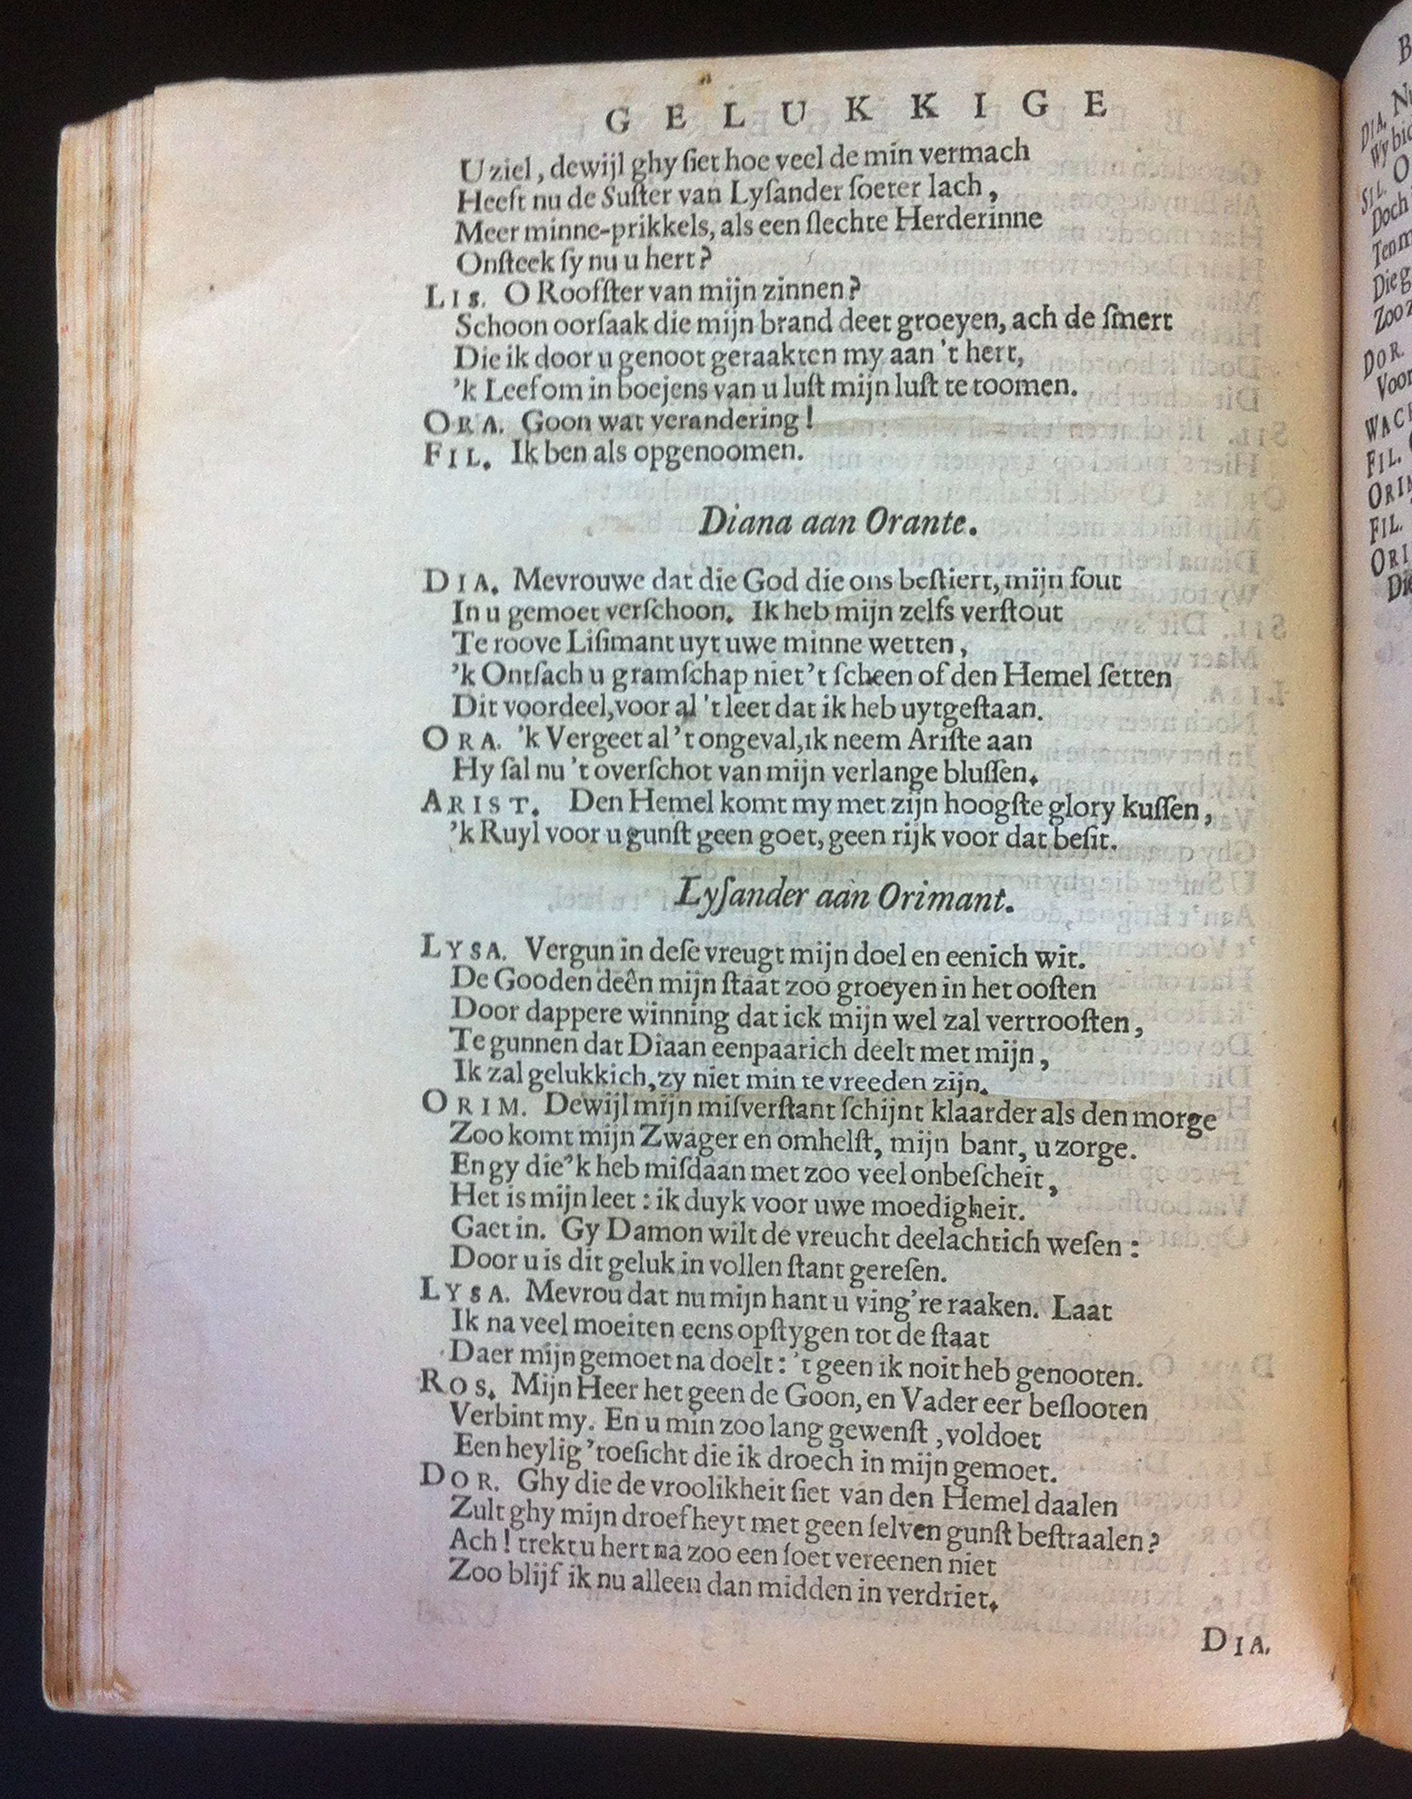 GELUKKIGE
U ziel, dewijl ghy ſiet hoe veel de min vermach
Heeft nu de Suſter van Lyſander ſoeter lach,
Meer minne-prikkels, als een ſlechte Herderinne
Onſteek ſy nu u hert?
LIS. O Roofſter van mijn zinnen?
Schoon oorſaak die mijn brand deet groeyen, ach de ſmert
Die ik door u genoot geraakten my aan 't hert,
'k Leef om in boejens van u luſt mijn luſt te toomen.
ORA. Goon wat verandering!
FIL. Ik ben als opgenoomen.
Diana aan Orante.
DIA. Mevrouwe dat die God die ons beſtiert, mijn fout
In u gemoet verſchoon. Ik heb mijn zelfs verſtout
Te roove Liſimant uyt uwe minne wetten,
'k Ontſach u gramſchap niet 't ſcheen of den Hemel ſetten
Dit voordeel, voor al 't leet dat ik heb uytgeſtaan.
ORA. 'k Vergeet al 't ongeval, ik neem Ariſte aan
Hy ſal nu 't overſchot van mijn verlange bluſſen.
ARIST. Den Hemel komt my met zijn hoogſte glory kuſſen,
'k Ruyl voor u gunſt geen goet, geen rijk voor dat beſit.
Lyſander aan Orimant.
LYSA. Vergun in deſe vreugt mijn doel en eenich wit.
De Gooden deên mijn ſtaat zoo groeyen in het ooſten
Door dappere winning dat ick mijn wel zal vertrooſten,
Te gunnen dat Diaan eenpaarich deelt met mijn,
Ik zal gelukkich, zy niet min te vreeden zijn.
ORIM. Dewijl mijn miſverſtant ſchijnt klaarder als den morge
Zoo komt mijn Zwager en omhelſt, mijn bant, u zorge.
En gy die 'k heb miſdaan met zoo veel onbeſcheit,
Het is mijn leet: ik duyk voor uwe moedigheit.
Gaet in. Gy Damon wilt de vreucht deelachtich weſen:
Door u is dit geluk in vollen ſtant gereſen.
LYSA. Mevrou dat nu mijn hant u ving're raaken. Laat
Ik na veel moeiten eens opſtygen tot de ſtaat
Daer mijn gemoet na doelt: 't geen ik noit heb genooten.
ROS. Mijn Heer het geen de Goon, en Vader eer beſlooten
Verbint my. En u min zoo lang gewenſt, voldoet
Een heylig 'toeſicht die ik droech in mijn gemoet.
DOR. Ghy die de vroolikheit ſiet van den Hemel daalen
Zult ghy mijn droefheyt met geen ſelven gunſt beſtraalen?
Ach! trekt u hert na zoo een ſoet vereenen niet
Zoo blijf ik nu alleen dan midden in verdriet.
DIA.